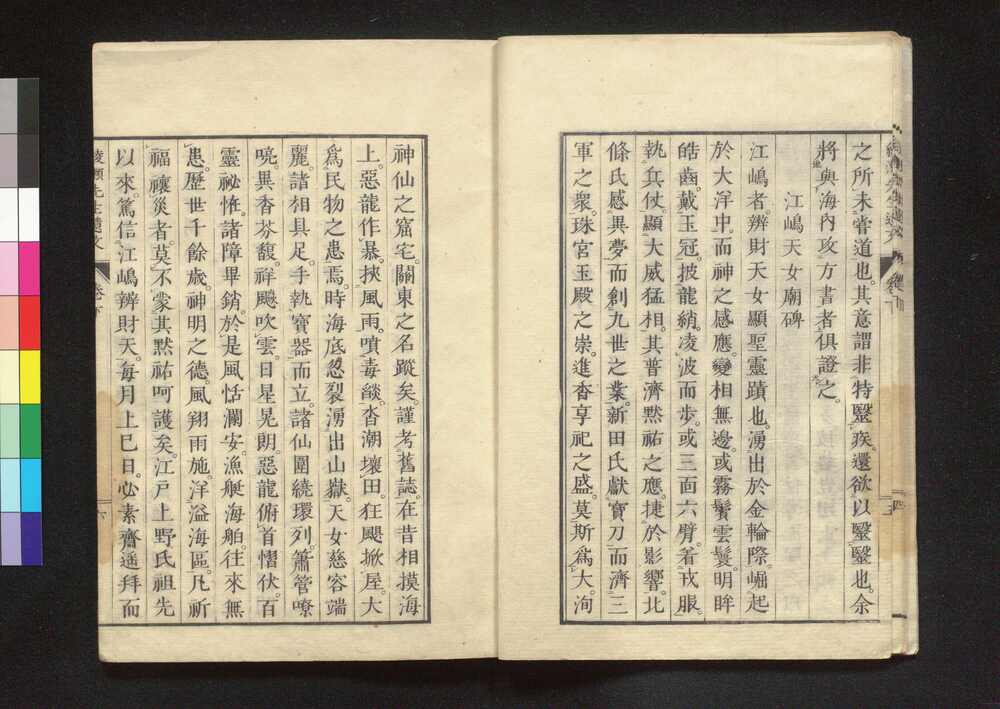 之所未嘗道也。其意謂非特醫疾。還欲以醫醫也。余
將與海內攻方書者俱證之。
江嶋天女廟碑
江嶋者辨財天女顯聖靈蹟也。湧出於金輪際。崛起
於大洋中。而神之感應。變相無邊。或霧鬢雲鬟。明眸
皓齒。戴玉冠。披龍綃。凌波而步。或三面六臂。着戎服。
執兵仗。顯大威猛相。其普濟黙祐之應。捷於影響。北
條氏感異夢。而創九世之業。新田氏獻寶刀。而濟三
軍之衆。珠宮玉殿之崇。進香享祀之盛。莫斯爲大。洵
神仙之窟宅。關東之名蹤矣。謹考舊誌。在昔相摸海
上。惡龍作暴。挾風雨。噴毒燄。沓潮壞田。狂颷掀屋。大
爲民物之患焉。時海底忽裂湧出山嶽。天女慈容端
麗。諸相具足。手執寶器而立。諸仙圍繞環列。簫管嘹
喨。異香芬馥。祥颷吹雲。日星晃朗。惡龍俯首慴伏。百
靈祕恠。諸障畢銷。於是風恬瀾安。漁艇海舶。往來無
患。歷世千餘歲。神明之德。風翔雨施。洋溢海區。凡祈
福禳災者。莫不蒙其黙祐呵護矣。江戸上野氏祖先
以來。篤信江嶋辨財天。每月上巳日。必素齋遥拜而
陵瀬先生遺文 卷下 六